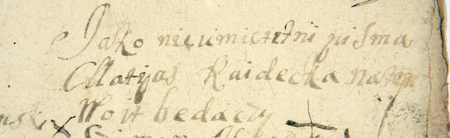 Jako nieumieiętni pisma
Matyas Raidecka naten
Woit bedaczy